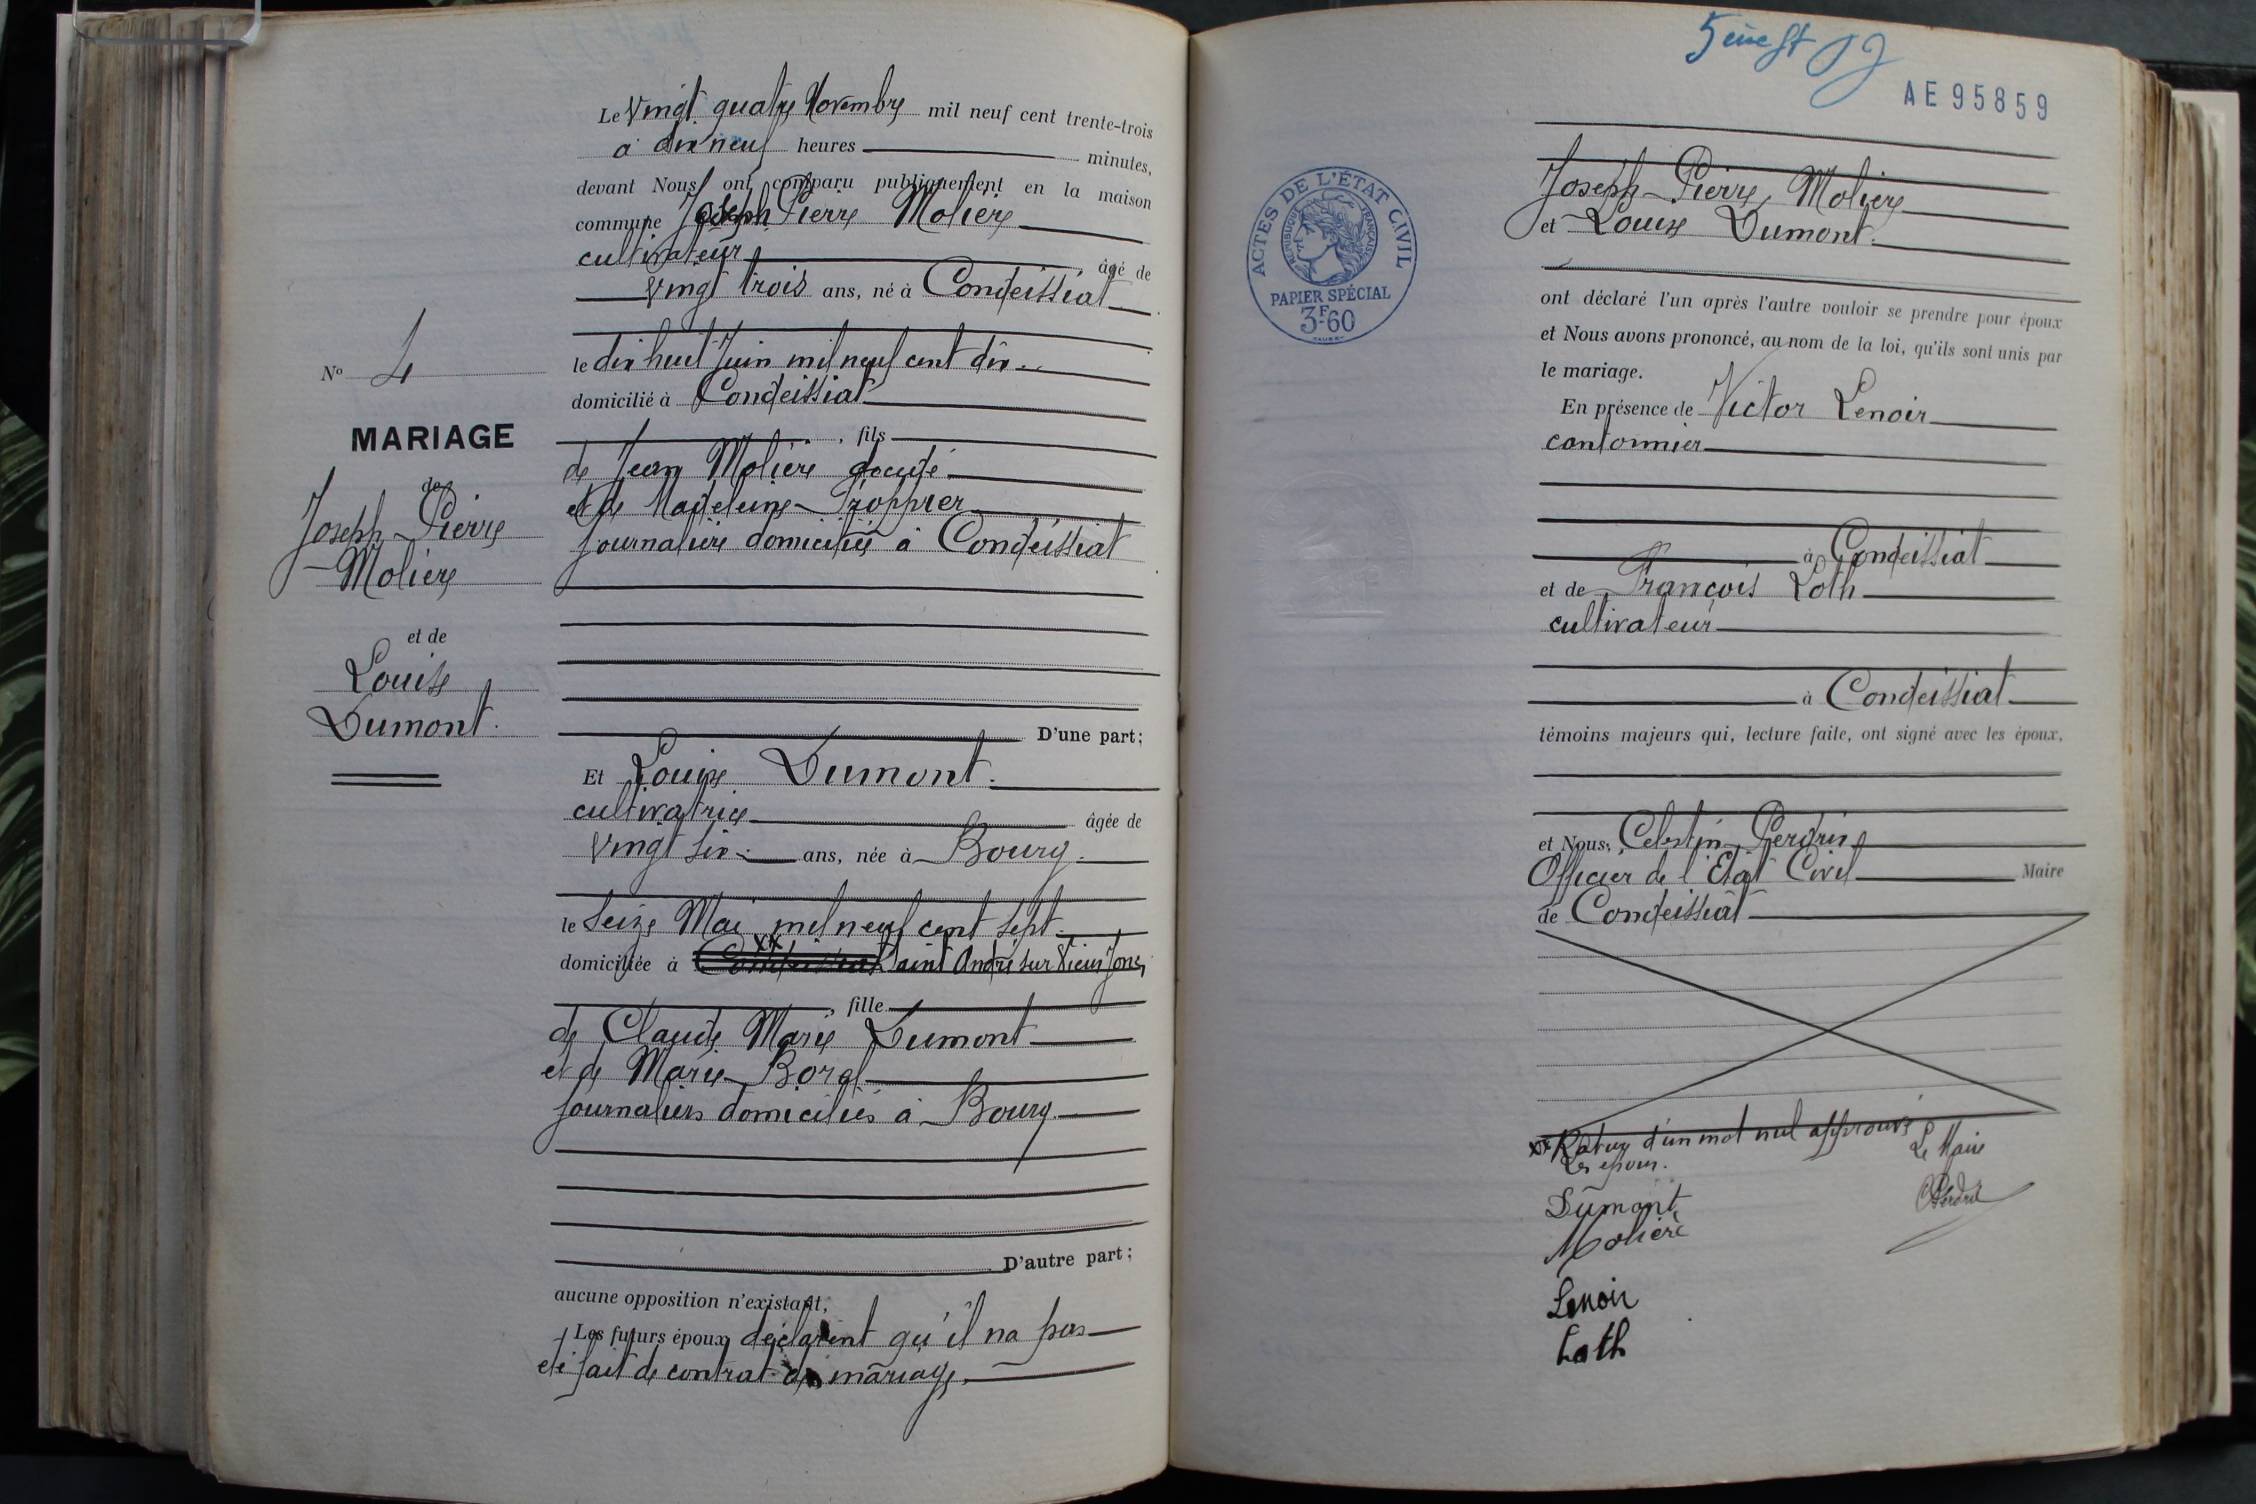 Le vingt quatre Novembre mil neuf cent trente-trois
à dix neuf heures minutes,
devant Nous ont comparu publiquement en la maison
commune Joseph Pierre Molière
cultivateur âgé de
vingt trois ans, né à Condeissiat
le dix huit Juin mil neuf cent dix
domicilié à Condeissiat
fils
de Jean Molière décédé
et de Madeleine
journalière domiciliée à Condeissiat
D'une part;
Et Louise Dumont.
cultivatrice âgée de
vingt six ans, née à Bourg.
le seize Mai mil neuf cent sept
domiciliée à Saint André sur Vieux Jonc,
fille
de Claude Marie Dumont
et de Marie Borel
journaliers domiciliés à Bourg
D'autre part;
aucune opposition n'existant;
Les futurs époux déclarent qu'il na pas
été fait de contrat de mariage.
No 4
MARIAGE
de
Joseph Pierre
Molière
et de
Louise
Dumont.
AE95859
ACTES DE L'ÉTAT CIVIL
RÉPUBLIQUE FRANÇAISE
PAPIER SPÉCIAL
3F-60
Joseph-Pierre Molière
et Louise Dumont.
ont déclaré l'un après l'autre vouloir se prendre pour époux
et Nous avons prononcé, au nom de la loi, qu'ils sont unis par
le mariage.
En présence de Victor Lenoir
cantonnier
à Condeissiat
et de François Loth
cultivateur
à Condeissiat
témoins majeurs qui, lecture faite, ont signé avec les époux,
et Nous, Celestin Perdrix
Officier de l'Etat Civil Maire
de Condeissiat
xx Rature d'un mot nul approuvé
Les époux. Le Maire
Dumont
Perdrix
Molière
Lenoir
Loth